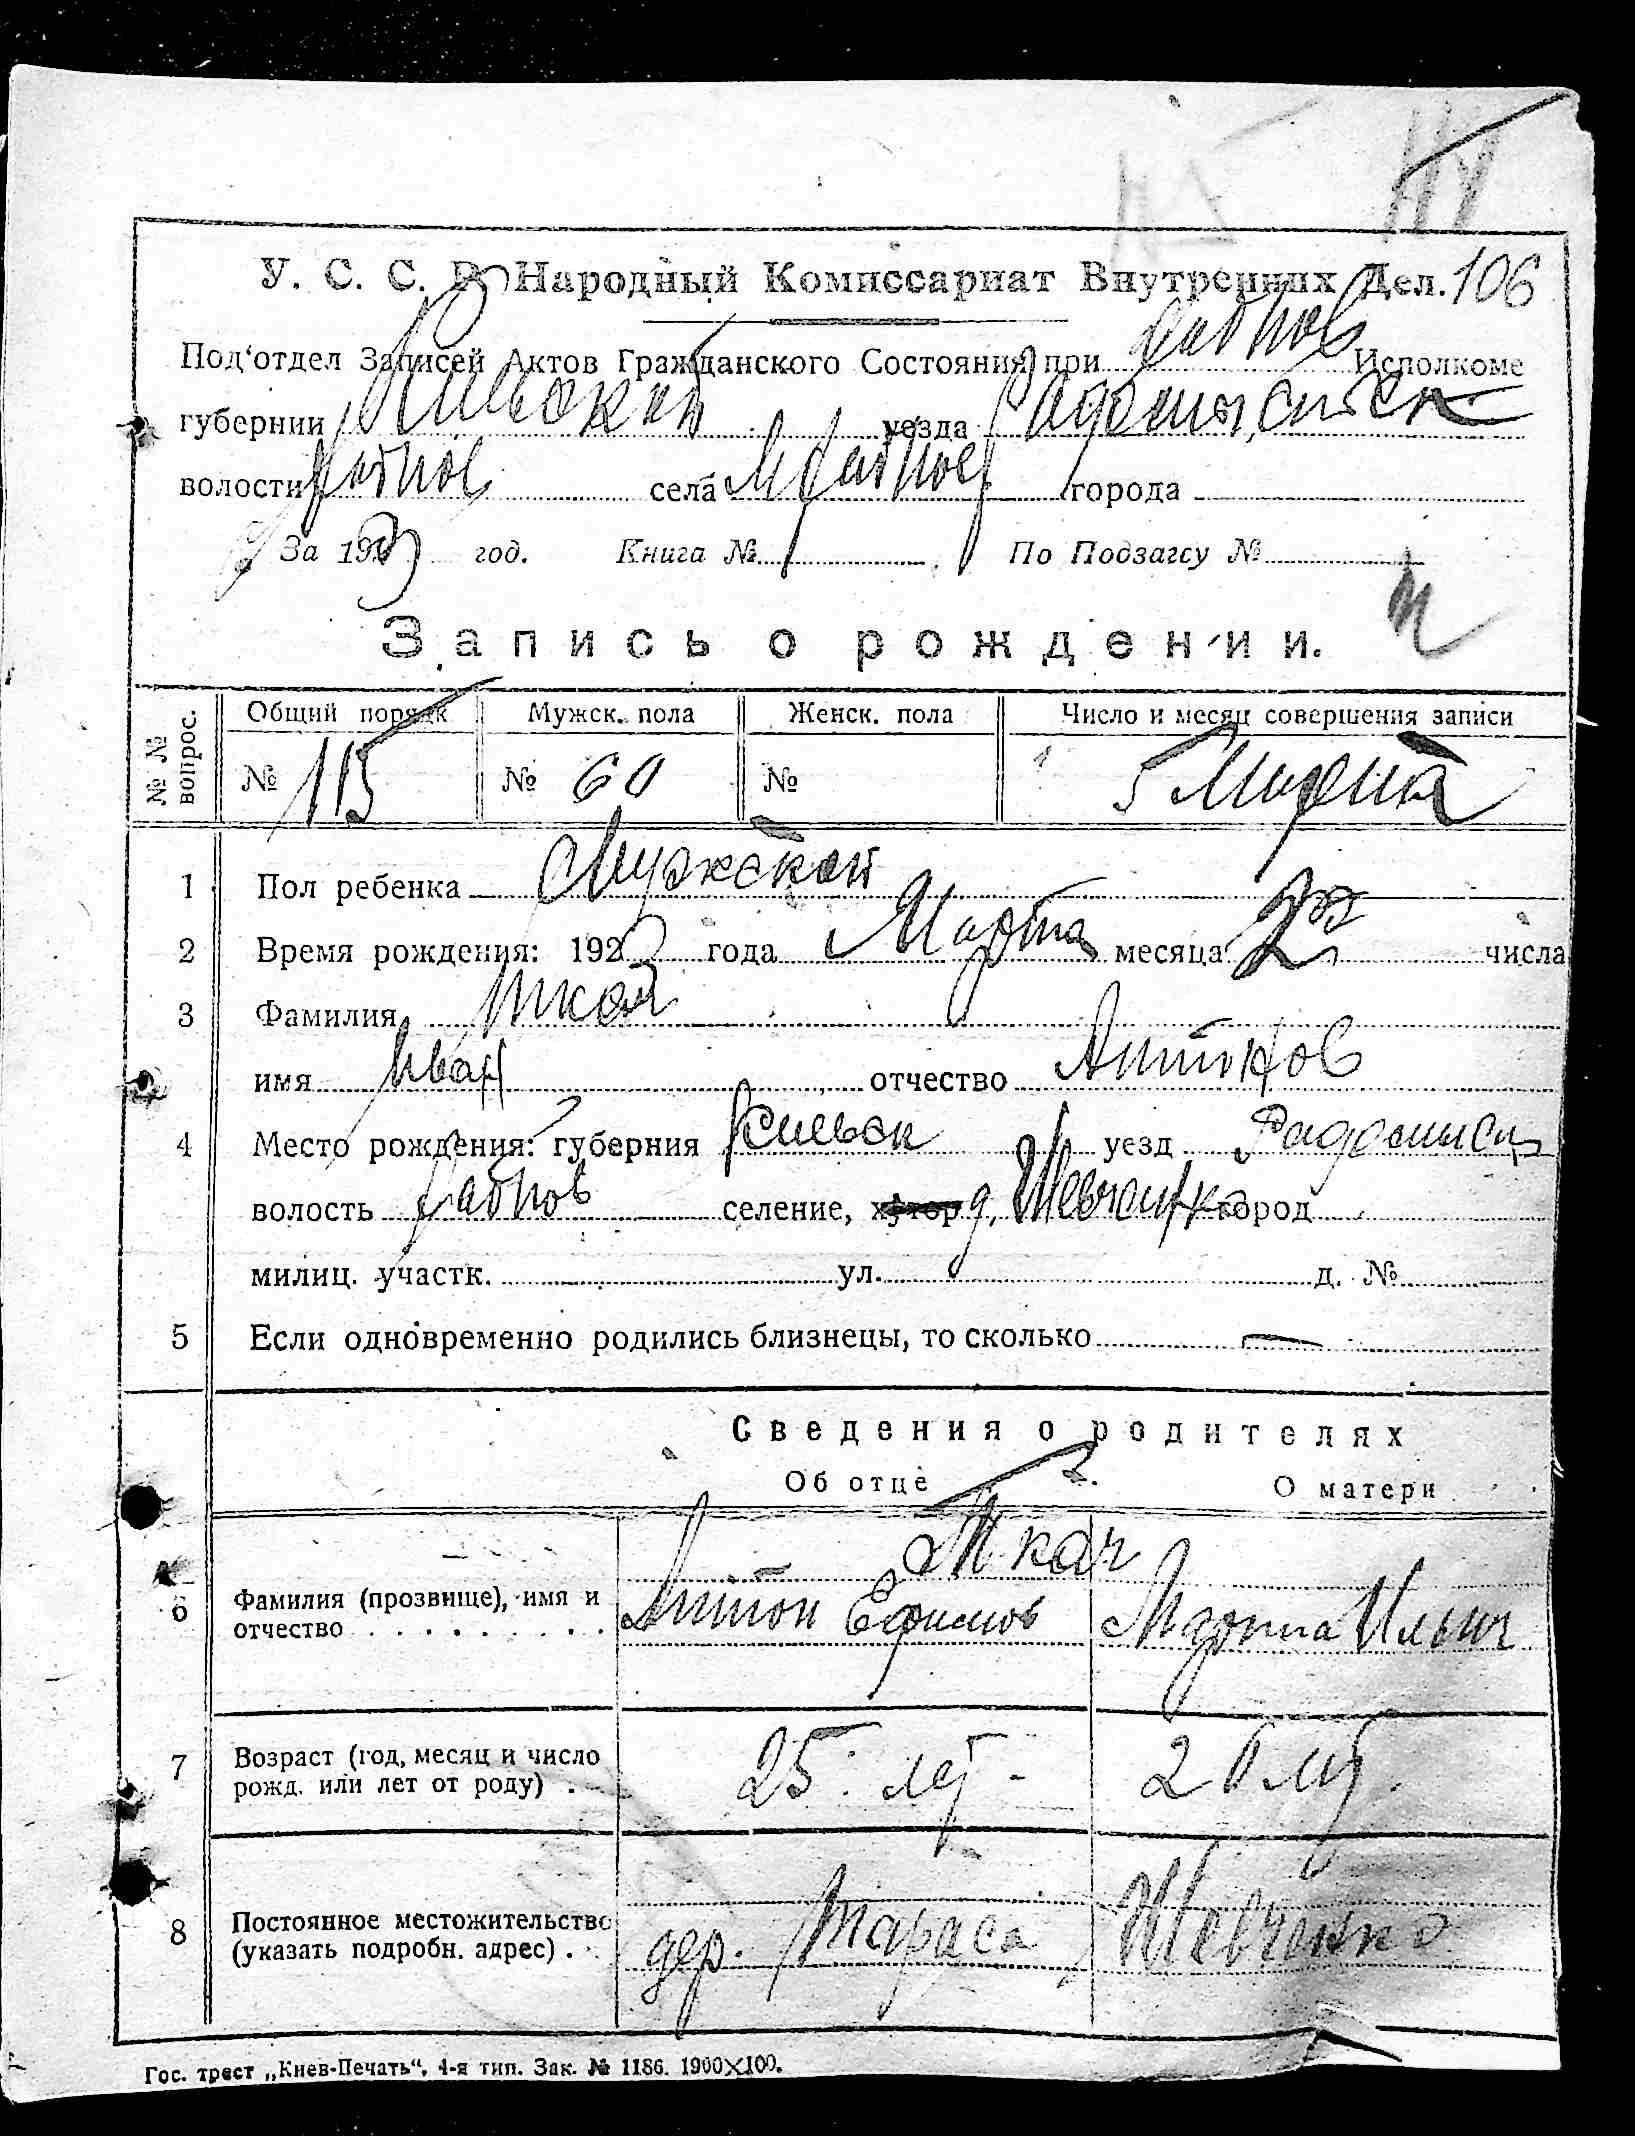 106
У. С. С. Р. Народный Комиссариат Внутренних Дел.
Под‘отдел Записей Актов Гражданского Состояния при Исполкоме
губернии Киевской уезда Радомысльск
волости села города
За 1923 год. Книга № По Подзагсу №
Запись о рождении.
№ № вопрос. Общий порядк Мужск. пола Женск. пола Число и месяц совершения записи
№ 115 № 60 № 5 Марта
1 Пол ребенка Мужской
2 Время рождения: 1923 года Марта месяца 2 числа
3 Фамилия Ткач
имя Иван отчество Антонов
4 Место рождения: губерния Киевск уезд Радомысл
волость селение, хутор д. Шевченко город
милиц. участк. ул. д. №
5 Если одновременно родились близнецы, то сколько —
Сведения о родителях
Об отце О матери
Ткач
6 Фамилия (прозвище), имя и отчество Антон Ефимов Марта Ильин
7 Возраст (год, месяц и число рожд. или лет от роду) 25 лет
8 Постоянное местожительство (указать подробн. адрес) дер. Тараса Шевченко
Гос. трест „Киев-Печать“, 4-я тип. Зак. № 1186. 1900×100.